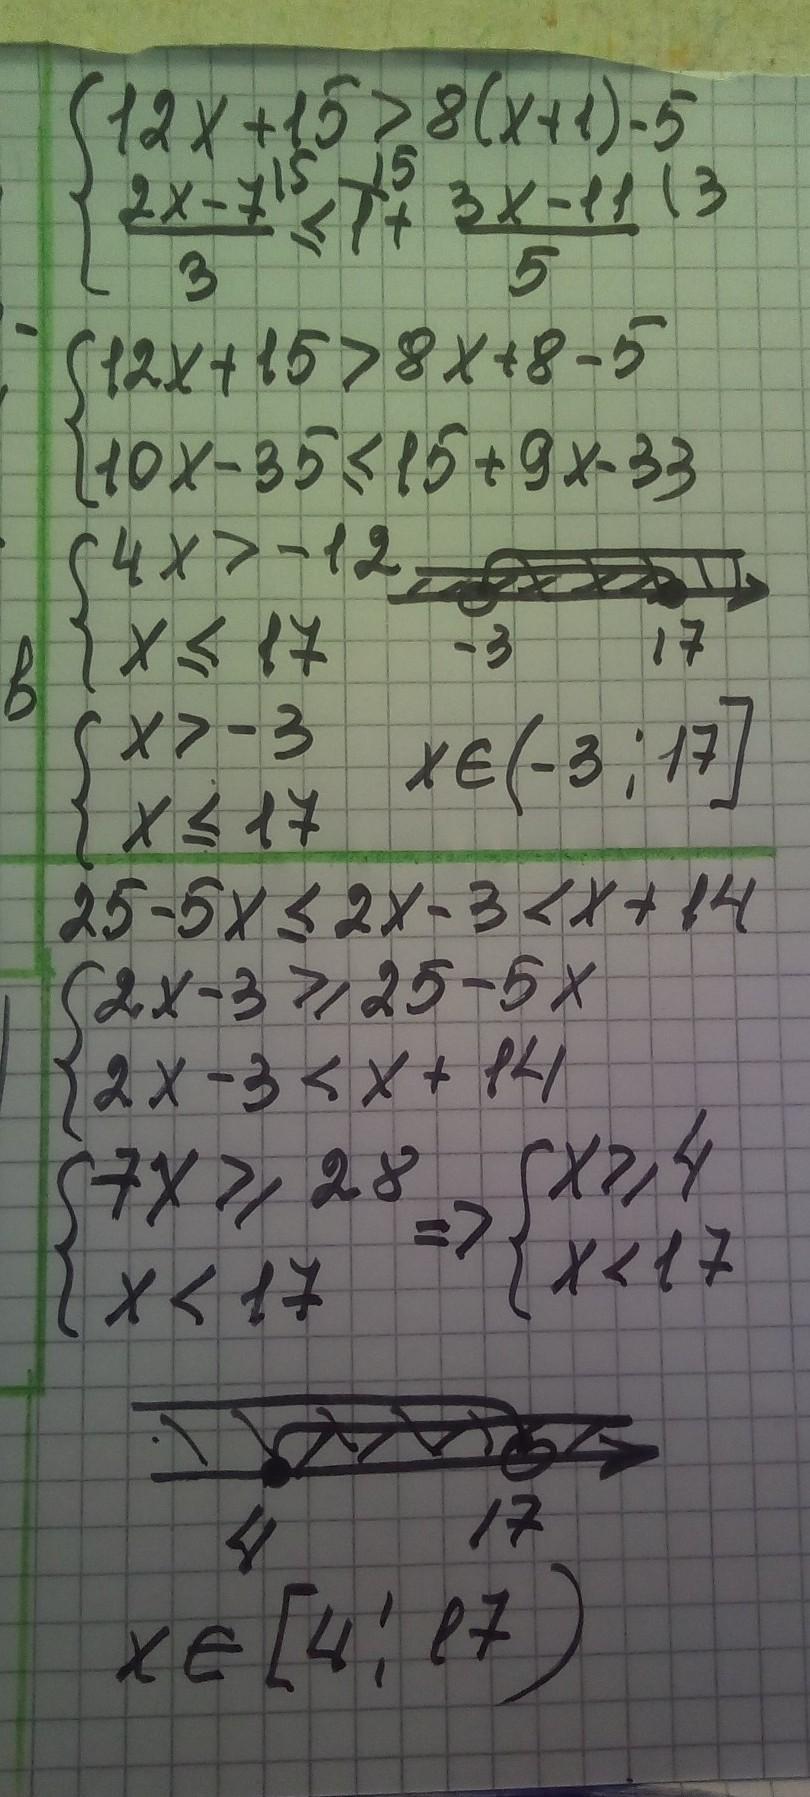 12x+15>8(x+1)-5
2x-7/3 ≤ 1+ 3x-11/5
12x+15>8x+8-5
10x-35≤15+9x-33
4x>-12
x≤17
-3 17
x>-3
x≤17
x∈(-3;17]
25-5x≤2x-3<x+14
2x-3⩾25-5x
2x-3<x+14
7x⩾28 => x⩾4
x<17 x<17
4 17
x∈[4;17)